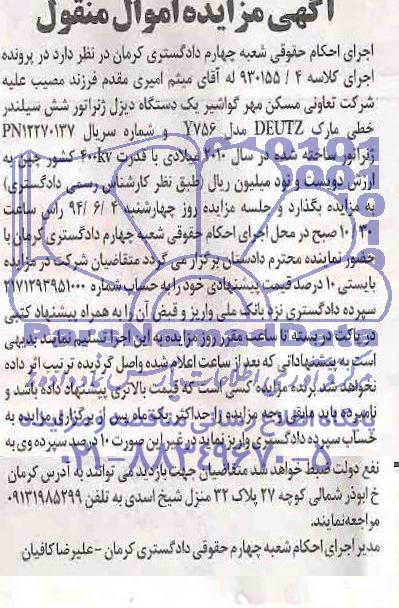 آگهی مزایده اموال منقول
اجرای احکام حقوقی شعبه چهارم دادگستری کرمان در نظر دارد در پرونده
اجرای کلاسه ۴ / ۹۳۰۱۵۵ له آقای میثم امیری مقدم فرزند مصیب علیه
شرکت تعاونی مسکن مهر گواشیر یک دستگاه دیزل ژنراتور شش سیلندر
خطی مارک DEUTZ مدل Y۷۵۶ و شماره سریال PN۱۲۲۷۰۱۳۷
ژنراتور ساخته شده در سال ۲۰۱۰ میلادی با قدرت ۴۰۰kv کشور چین به
ارزش دویست و نود میلیون ریال (طبق نظر کارشناس رسمی دادگستری)
به مزایده بگذارد و جلسه مزایده روز چهارشنبه ۴ /۶ /۹۴ راس ساعت
۱۰/۳۰ صبح در محل اجرای احکام حقوقی شعبه چهارم دادگستری کرمان با
حضور نماینده محترم دادستان برگزار می گردد متقاضیان شرکت در مزایده
بایستی ۱۰ درصد قیمت پیشنهادی خود را به حساب شماره ۲۱۷۱۲۹۳۹۵۱۰۰۰
سپرده دادگستری نزد بانک ملی واریز و قبض آن را به همراه پیشنهاد کتبی
در پاکت در بسته تا ساعت مقرر روز مزایده به این اجرا تسلیم نمایند بدیهی
است به پیشنهاداتی که بعد از ساعت اعلام شده واصل گردیده ترتیب اثر داده
نخواهد شد. برنده مزایده کسی است که قیمت بالاتری پیشنهاد داده باشد و
نامبرده باید مابقی وجه مزایده را حداکثر یک ماه پس از برگزاری مزایده به
حساب سپرده دادگستری واریز نماید در غیر این صورت ۱۰ درصد سپرده وی به
نفع دولت ضبط خواهد شد متقاضیان جهت بازدید می توانند به آدرس کرمان
خ ابوذر شمالی کوچه ۲۷ پلاک ۳۲ منزل شیخ اسدی به تلفن ۰۹۱۳۱۹۸۵۲۹۹
مراجعه نمایند.
مدیر اجرای احکام شعبه چهارم حقوقی دادگستری کرمان - علیرضا کافیان
ParsNamadData
پایگاه اطلاع رسانی مناقصه و مزایده
۰۲۱-۸۸۳۴۹۶۷۰-۵